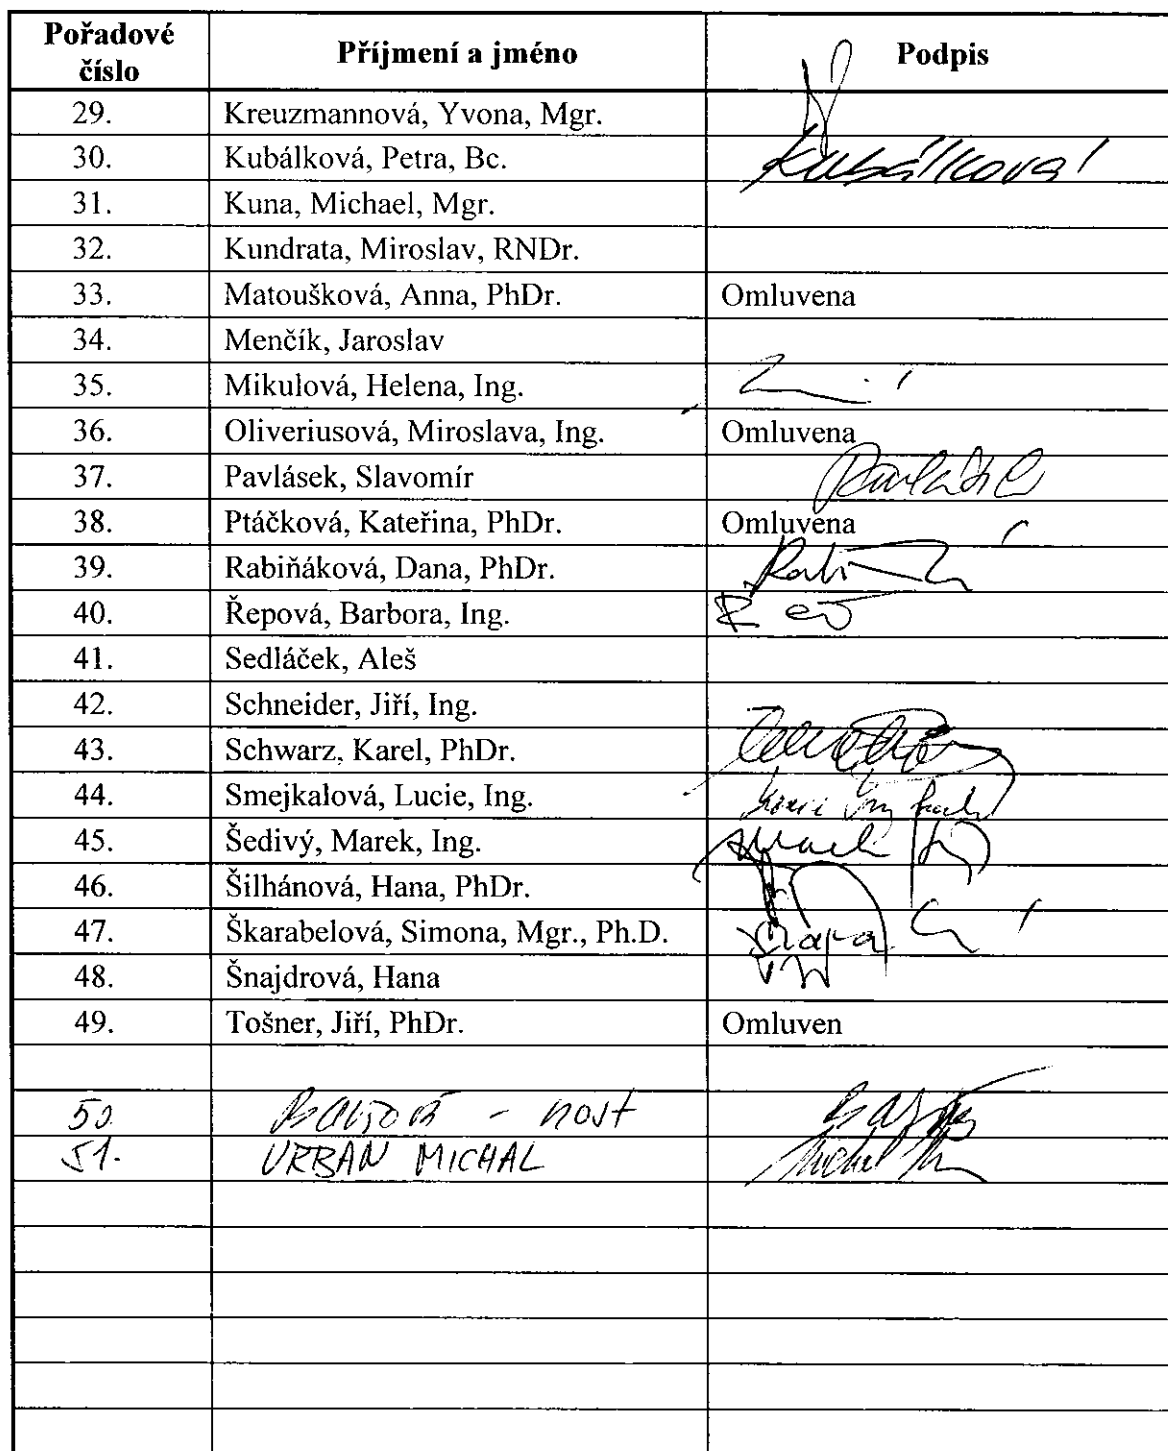 Pořadové číslo Příjmení a jméno Podpis
29. Kreuzmannová, Yvona, Mgr.
30. Kubálková, Petra, Bc. Kubálková
31. Kuna, Michael, Mgr.
32. Kundrata, Miroslav, RNDr.
33. Matoušková, Anna, PhDr. Omluvena
34. Menčík, Jaroslav
35. Mikulová, Helena, Ing.
36. Oliveriusová, Miroslava, Ing. Omluvena
37. Pavlásek, Slavomír
38. Ptáčková, Kateřina, PhDr. Omluvena
39. Rabiňáková, Dana, PhDr.
40. Řepová, Barbora, Ing.
41. Sedláček, Aleš
42. Schneider, Jiří, Ing.
43. Schwarz, Karel, PhDr.
44. Smejkalová, Lucie, Ing.
45. Šedivý, Marek, Ing.
46. Šilhánová, Hana, PhDr.
47. Škarabelová, Simona, Mgr., Ph.D.
48. Šnajdrová, Hana
49. Tošner, Jiří, PhDr. Omluven
50. - host
51. URBAN MICHAL